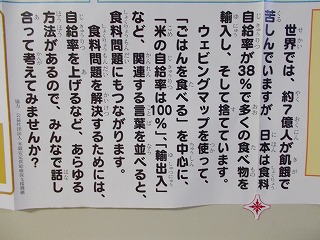 世界では、約7億人が飢餓で
苦しんでいますが、日本は食料
自給率が38%で多くの食べ物を
輸入し、そして捨てています。
ウェビングマップを使って、
「ごはんを食べる」を中心に、
「米の自給率は100%」、「輸出入」
など、関連する言葉を並べると、
食料問題にもつながります。
食料問題を解決するためには、
自給率を上げるなど、あらゆる
方法があるので、みんなで話し
合って考えてみませんか?